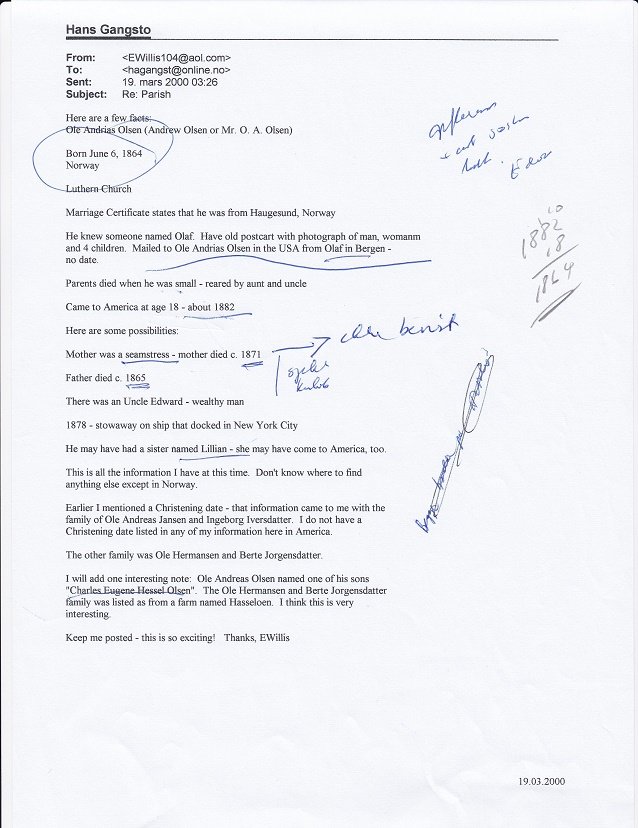 Hans Gangsto
From: <EWillis104@aol.com>
To: <hagangst@online.no>
Sent: 19. mars 2000 03:26
Subject: Re: Parish
Here are a few facts:
Ole Andrias Olsen (Andrew Olsen or Mr. O. A. Olsen)
Born June 6, 1864
Norway
Luthern Church
Marriage Certificate states that he was from Haugesund, Norway
He knew someone named Olaf. Have old postcart with photograph of man, womanm
and 4 children. Mailed to Ole Andrias Olsen in the USA from Olaf in Bergen -
no date.
10
1882
18
1864
Parents died when he was small - reared by aunt and uncle
Came to America at age 18 - about 1882
Here are some possibilities:
Mother was a seamstress - mother died c. 1871
Father died c. 1865
There was an Uncle Edward - wealthy man
1878 - stowaway on ship that docked in New York City
He may have had a sister named Lillian - she may have come to America, too.
This is all the information I have at this time. Don't know where to find
anything else except in Norway.
Earlier I mentioned a Christening date - that information came to me with the
family of Ole Andreas Jansen and Ingeborg Iversdatter. I do not have a
Christening date listed in any of my information here in America.
The other family was Ole Hermansen and Berte Jorgensdatter.
I will add one interesting note: Ole Andreas Olsen named one of his sons
"Charles Eugene Hessel Olsen". The Ole Hermansen and Berte Jorgensdatter
family was listed as from a farm named Hasseloen. I think this is very
interesting.
Keep me posted - this is so exciting! Thanks, EWillis
19.03.2000